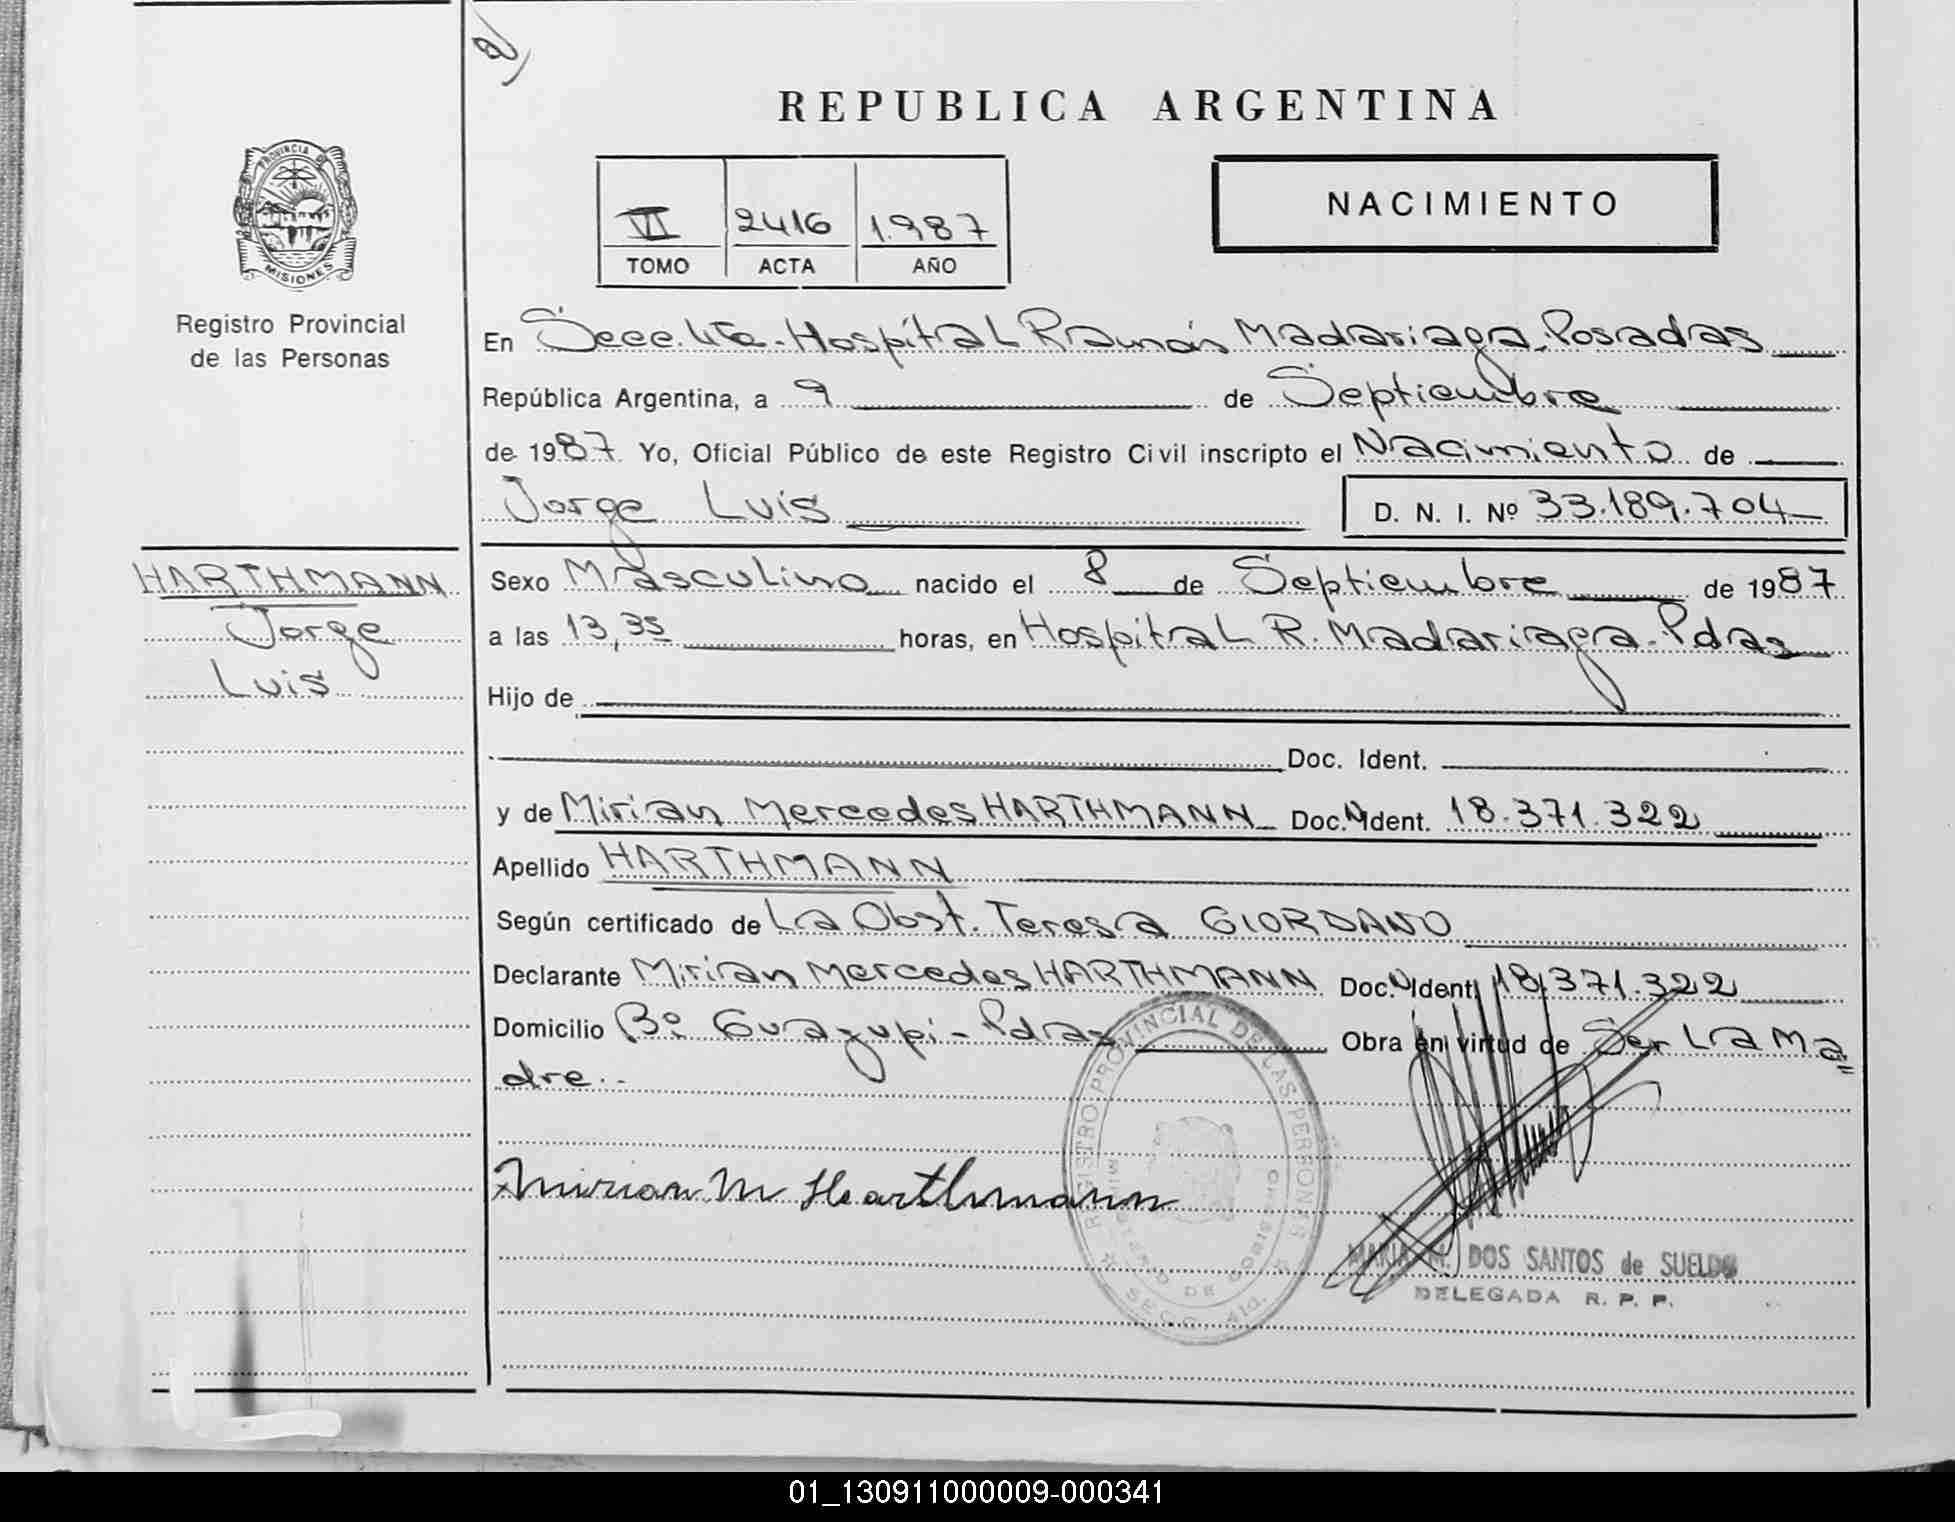 REPUBLICA ARGENTINA
PROVINCIA DE
MISIONES
Registro Provincial
de las Personas
VI 2416 1.987
TOMO ACTA AÑO
NACIMIENTO
En Secc. 4ta. Hospital Ramón Madariaga - Posadas
República Argentina, a 9 de Septiembre
de 1987. Yo, Oficial Público de este Registro Civil inscripto el Nacimiento de
Jorge Luis D. N. I. Nº 33.189.704
HARTHMANN
Jorge
Luis
Sexo Masculino nacido el 8 de Septiembre de 1987
a las 13,35 horas, en Hospital R. Madariaga - Pdas
Hijo de
Doc. Ident.
y de Mirian Mercedes HARTHMANN Doc. N Ident. 18.371.322
Apellido HARTHMANN
Según certificado de La Obst. Teresa GIORDANO
Declarante Mirian Mercedes HARTHMANN Doc. N Ident. 18.371.322
Domicilio Bº Guazupi - Pdas Obra en virtud de Ser La Ma=
dre.-
Mirian M Harthmann
REGISTRO PROVINCIAL DE LAS PERSONAS
MINISTERIO DE GOBIERNO
SECC. 4ta.
MARIA M. DOS SANTOS de SUELDO
DELEGADA R. P. P.
01_130911000009-000341